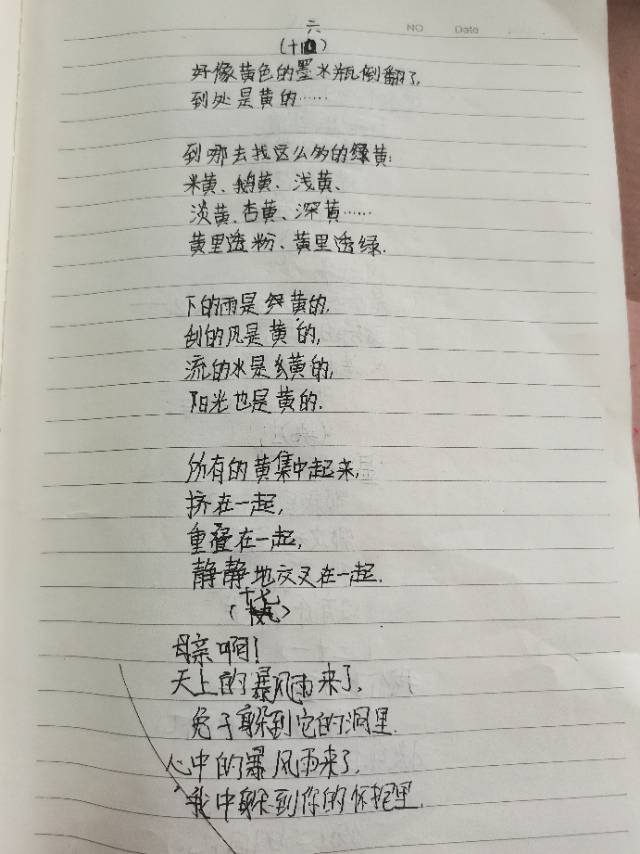 六
NO Date
(十四)
好像黄色的墨水瓶倒翻了,
到处是黄的……
到哪去找这么多的黄:
米黄、鹅黄、浅黄、
淡黄、杏黄、深黄……
黄里透粉、黄里透绿.
下的雨是黄的,
刮的风是黄的,
流的水是黄的,
阳光也是黄的.
所有的黄集中起来,
挤在一起,
重叠在一起,
静静地交叉在一起.
母亲啊!
天上的暴风雨来了,
兔子躲到它的洞里.
心中的暴风雨来了,
我中躲到你的怀抱里.